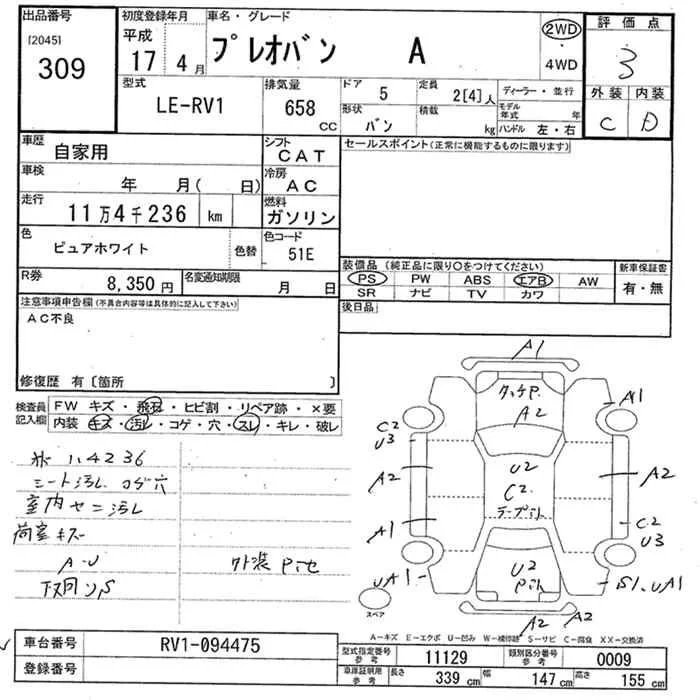 出品番号
[2045]
309
初度登録年月
平成
17 4 月
車名・グレード
プレオバン A
2WD
・
4WD
評価点
3
外装 内装
C D
型式
LE-RV1
排気量
658
CC
ドア
5
定員
2[4]人
ディーラー・並行
形状
バン
積載
kg
モデル年式 年
ハンドル 左・右
車歴
自家用
シフト
CAT
セールスポイント(正常に機能するものに限ります)
車検
年 月( 日)
冷房
AC
走行
11万4千236 km
燃料
ガソリン
色
ピュアホワイト
色替
色コード
51E
R券
8,350円
名変通知期限
月 日
装備品(純正品に限り○をつけてください)
PS PW ABS エアB AW
SR ナビ TV カワ
新車保証書
有・無
後日品
注意事項申告欄(不具合内容等は具体的に記入して下さい)
AC不良
修復歴 有〔箇所 〕
検査員記入欄
FW キズ・飛石・ヒビ割・リペア跡・×要
内装 キズ・汚レ・コゲ・穴・スレ・キレ・破レ
114236
シート汚レ コゲ穴
汚レ
荷室キズ
A-U
下廻りS
外装
A1
タッチP.
A2
A1
C2
U3
A2
U2
C2
A2
A1
C2
U3
UA1
U2
S1.UA1
スペア
A2 A2
A-キズ E-エクボ U-凹み W-補修跡 S-サビ C-腐食 XX-交換済
車台番号
RV1-094475
登録番号
型式指定番号
参考
11129
類別区分番号
参考
0009
車庫証明用
参考
長さ
339 cm
幅
147 cm
高さ
155 cm